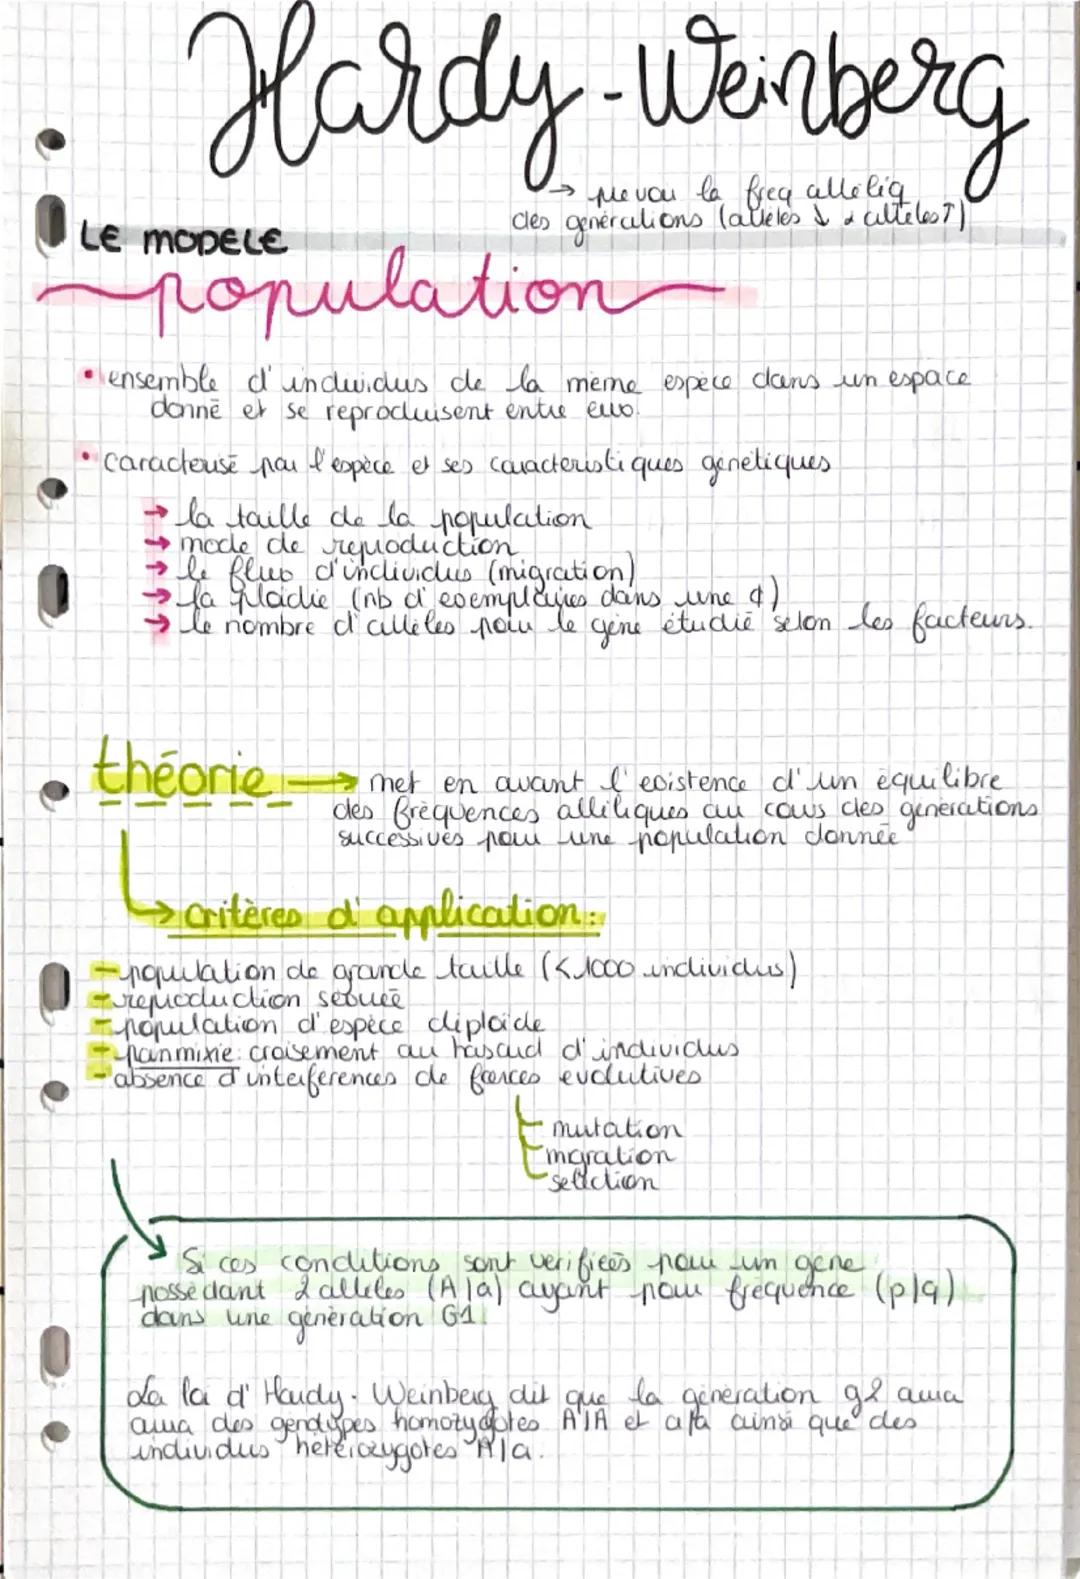 Hardy-Weinberg
→ prevoir la freq alleliq
des générations (allèles ↓ & allèles ↑)
LE MODELE
population
• ensemble d'individus de la même espèce dans un espace
donné et se reproduisent entre eux.
• caracterisé par l'espèce et ses caracteristiques génétiques
→ la taille de la population
→ mode de reproduction
→ le flux d'individus (migration)
→ la ploïdie (nb d'exemplaires dans une ¢)
→ le nombre d'allèles pour le gène étudié selon les facteurs.
théorie → met en avant l'existence d'un équilibre
des fréquences alléliques au cours des générations
successives pour une population donnée
→ critères d'application:
- population de grande taille (< 1000 individus)
- reproduction sexuée
- population d'espèce diploïde
- panmixie: croisement au hasard d'individus
- absence d'interferences de forces evolutives
mutation
migration
selection
Si ces conditions sont verifiées pour un gene
possédant 2 alleles (A/a) ayant pour fréquence (p/q)
dans une génération G1.
La loi d'Hardy-Weinberg dit que la génération g2 aura
aura des génotypes homozygotes A/A et a/a ainsi que des
individus hétérozygotes A/a.